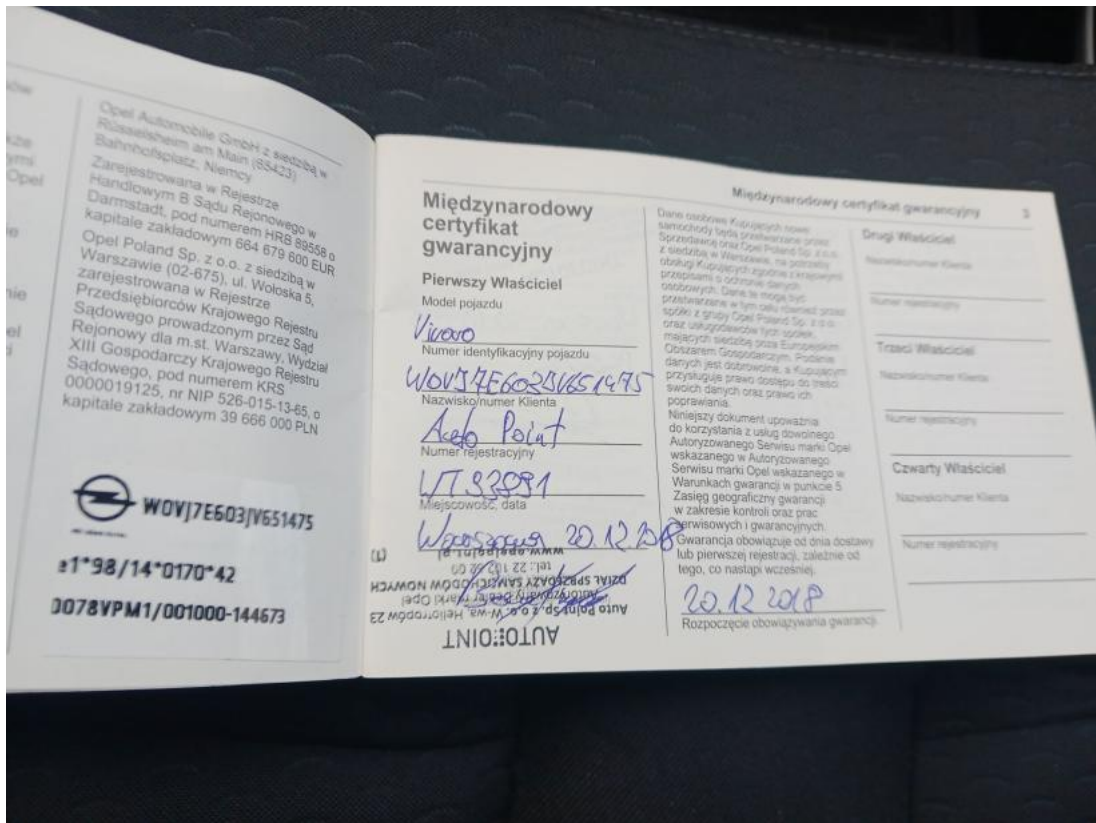 Opel
Opel Automobile GmbH z siedzibą w
Rüsselsheim am Main (65423)
Bahnhofsplatz, Niemcy
Zarejestrowana w Rejestrze
Handlowym B Sądu Rejonowego w
Darmstadt, pod numerem HRB 89558 o
kapitale zakładowym 664 679 600 EUR
Opel Poland Sp. z o.o. z siedzibą w
Warszawie (02-675), ul. Wołoska 5,
zarejestrowana w Rejestrze
Przedsiębiorców Krajowego Rejestru
Sądowego prowadzonym przez Sąd
Rejonowy dla m.st. Warszawy, Wydział
XIII Gospodarczy Krajowego Rejestru
Sądowego, pod numerem KRS
0000019125, nr NIP 526-015-13-65, o
kapitale zakładowym 39 666 000 PLN
W0VJ7E603JV651475
e1*98/14*0170*42
0078VPM1/001000-144673
Międzynarodowy certyfikat gwarancyjny 3
Międzynarodowy
certyfikat
gwarancyjny
Pierwszy Właściciel
Model pojazdu
Vivaro
Numer identyfikacyjny pojazdu
W0VJ7E603JV651475
Nazwisko/numer Klienta
Auto Point
Numer rejestracyjny
Miejscowość, data
Warszawa 20.12.2018
(1)
AUTOPOINT
Auto Point Sp. z o.o. W-wa, Heliotropów 23
Autoryzowany Dealer Marki Opel
DZIAŁ SPRZEDAŻY SAMOCHODÓW NOWYCH
Dane osobowe Kupujących nowe
samochody będą przetwarzane przez
Sprzedawcę oraz Opel Poland Sp. z o.o.
z siedzibą w Warszawie, na potrzeby
obsługi Kupujących zgodnie z krajowymi
przepisami o ochronie danych
osobowych. Dane te mogą być
przetwarzane w tym celu również przez
spółki z grupy Opel Poland Sp. z o.o.
oraz usługodawców tych spółek,
mających siedzibę poza Europejskim
Obszarem Gospodarczym. Podanie
danych jest dobrowolne, a Kupującym
przysługuje prawo dostępu do treści
swoich danych oraz prawo ich
poprawiania.
Niniejszy dokument upoważnia
do korzystania z usług dowolnego
Autoryzowanego Serwisu marki Opel
wskazanego w Autoryzowanego
Serwisu marki Opel wskazanego w
Warunkach gwarancji w punkcie 5.
Zasięg geograficzny gwarancji
w zakresie kontroli oraz prac
serwisowych i gwarancyjnych.
Gwarancja obowiązuje od dnia dostawy
lub pierwszej rejestracji, zależnie od
tego, co nastąpi wcześniej.
20.12 2018
Rozpoczęcie obowiązywania gwarancji
Drugi Właściciel
Nazwisko/numer Klienta
Numer rejestracyjny
Trzeci Właściciel
Nazwisko/numer Klienta
Numer rejestracyjny
Czwarty Właściciel
Nazwisko/numer Klienta
Numer rejestracyjny